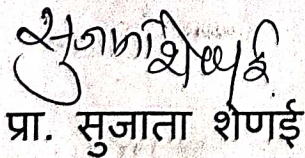 सुजाता शेणई
प्रा. सुजाता शेणई